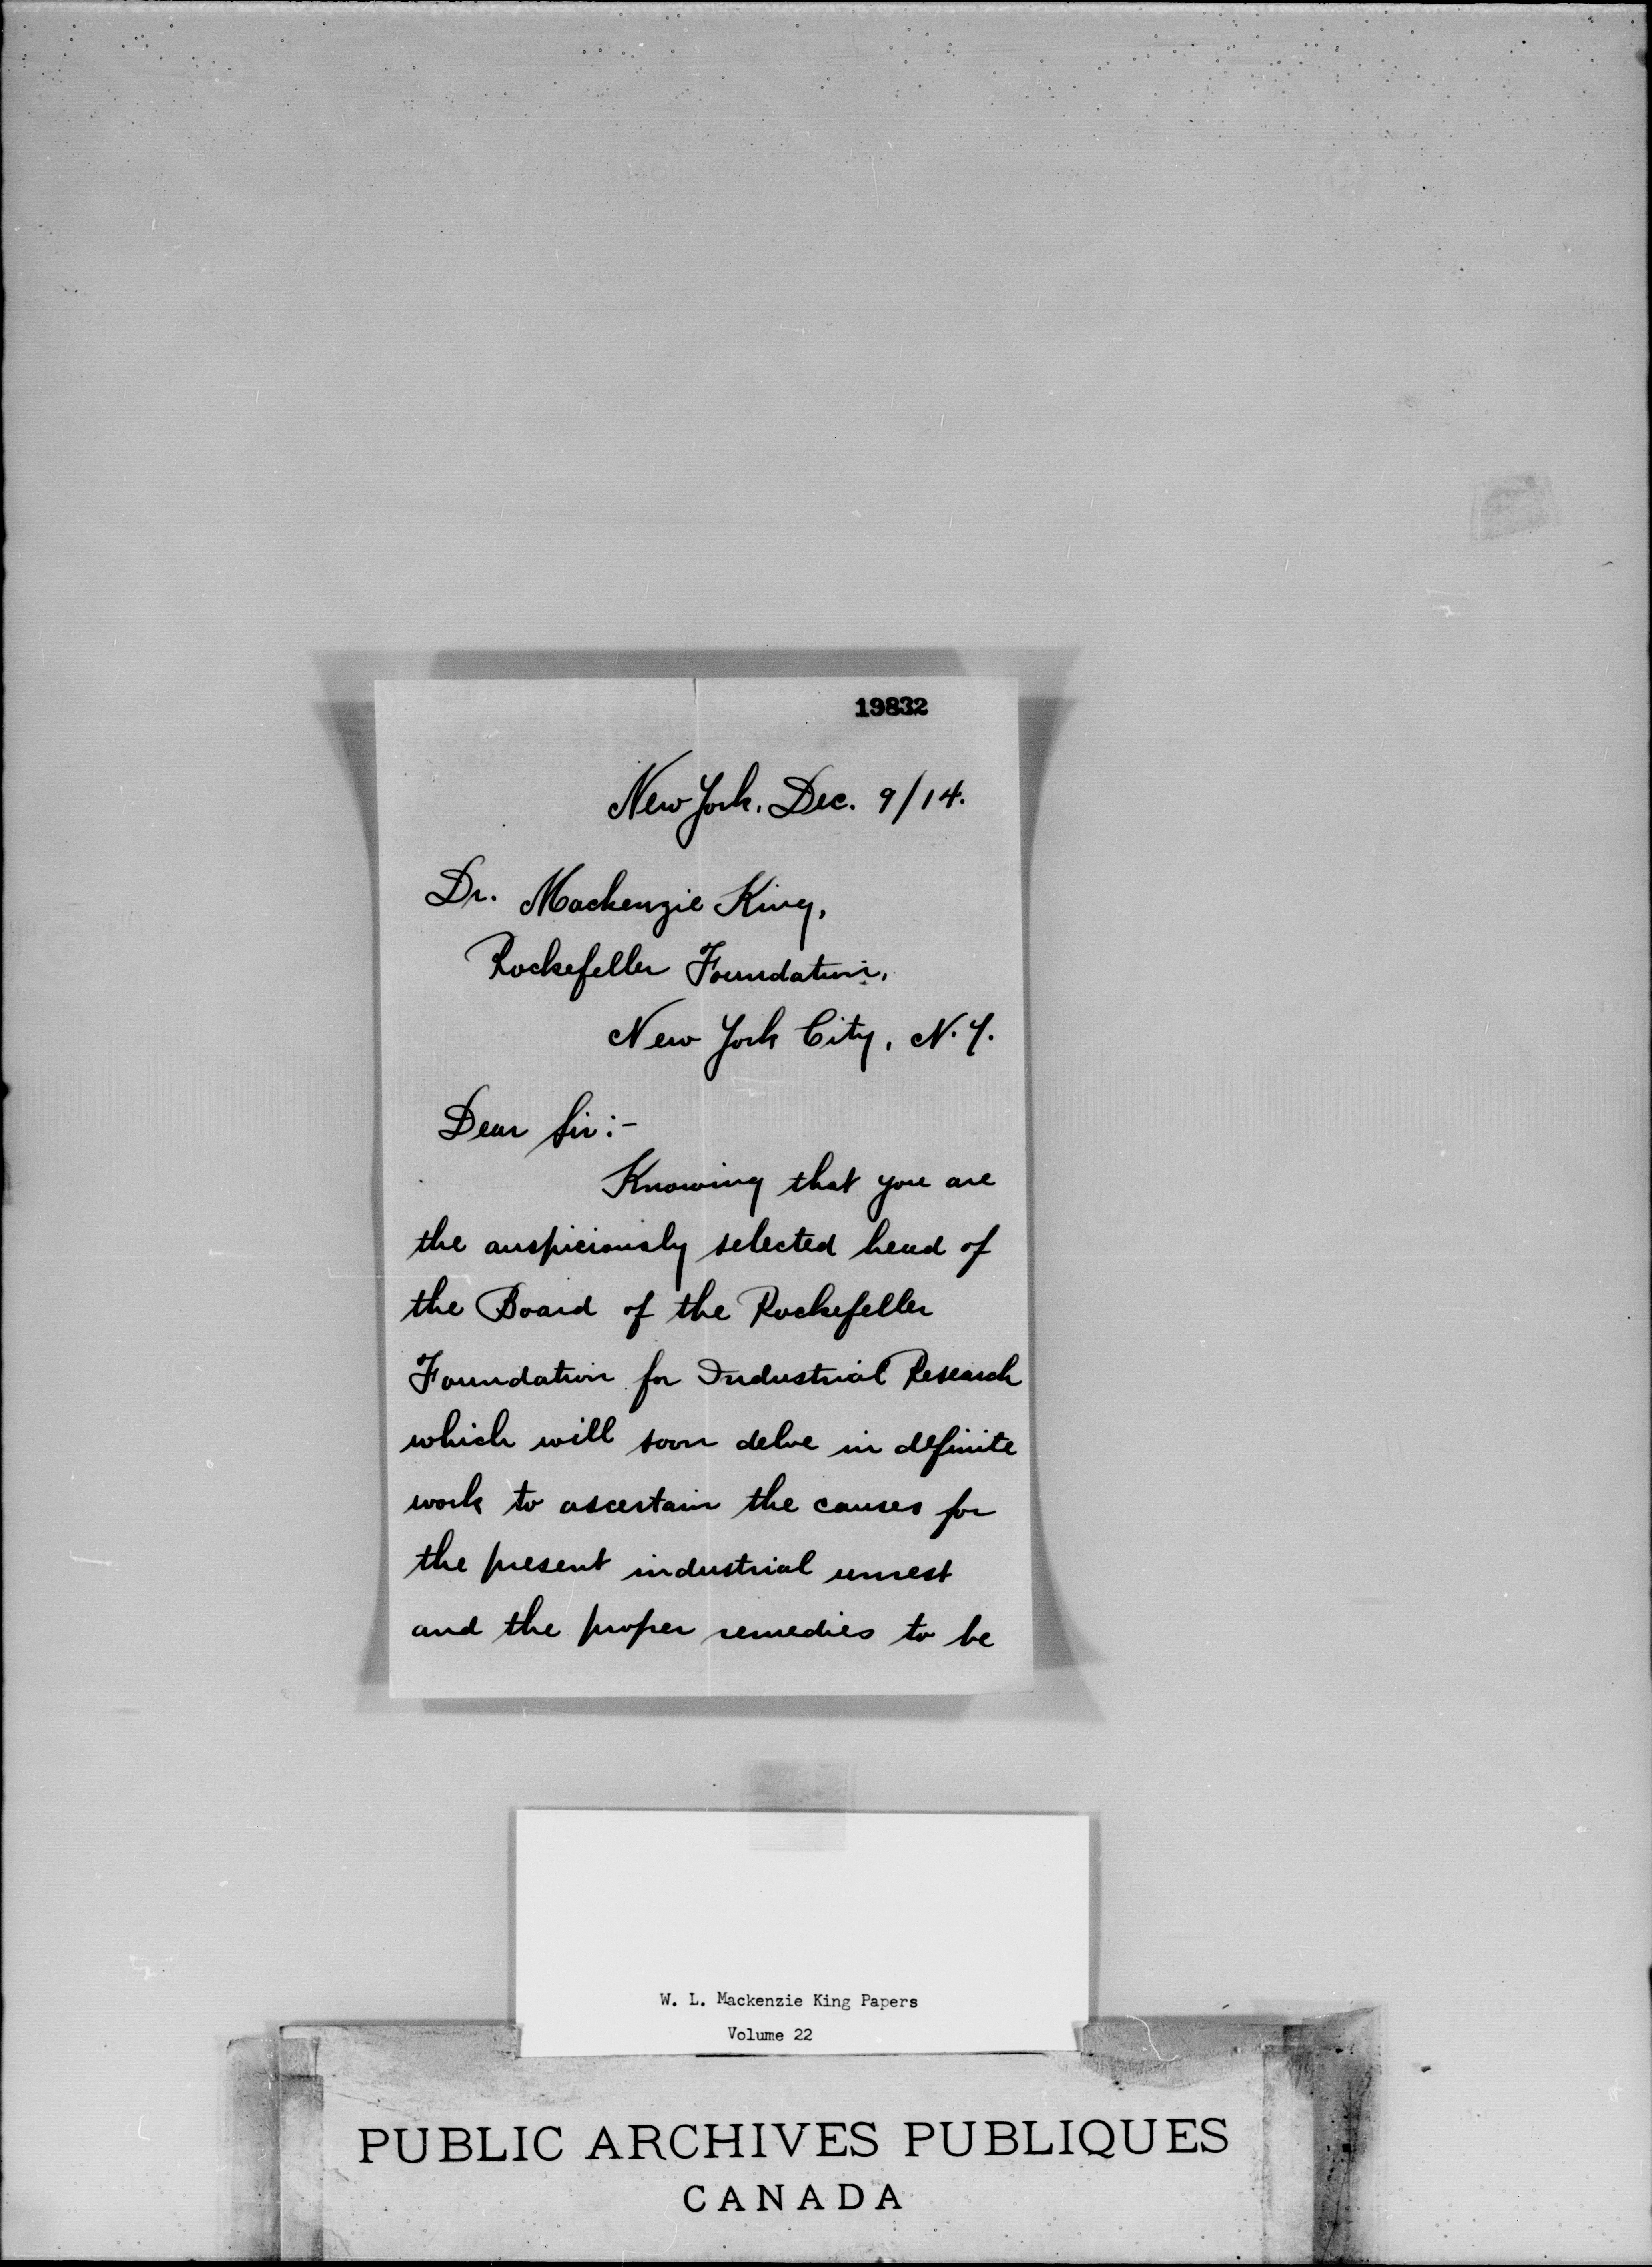 19832
New York, Dec. 9/14.
Dr. Mackenzie King,
Rockefeller Foundation,
New York City, N.Y.
Dear Sir:-
Knowing that you are
the auspiciously selected head of
the Board of the Rockefeller
Foundation for Industrial Research
which will soon delve in definite
work to ascertain the causes for
the present industrial unrest
and the proper remedies to be
W. L. Mackenzie King Papers
Volume 22
PUBLIC ARCHIVES PUBLIQUES
CANADA